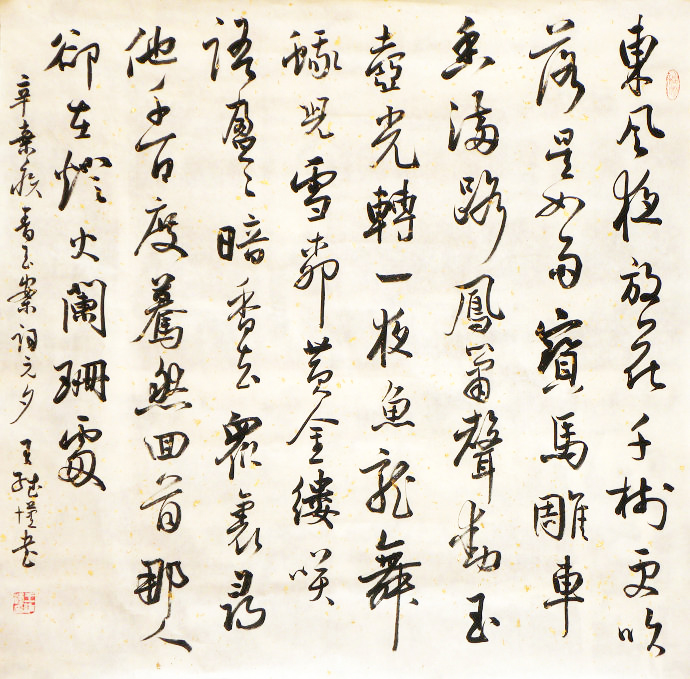 東風夜放花千樹更吹
落星如雨寶馬雕車
香滿路鳳簫聲動玉
壺光轉一夜魚龍舞
蛾兒雪柳黄金縷笑
語盈〻暗香去衆裏尋
他千百度驀然回首那人
卻在燈火闌珊處
辛棄疾青玉案詞元夕 王
書